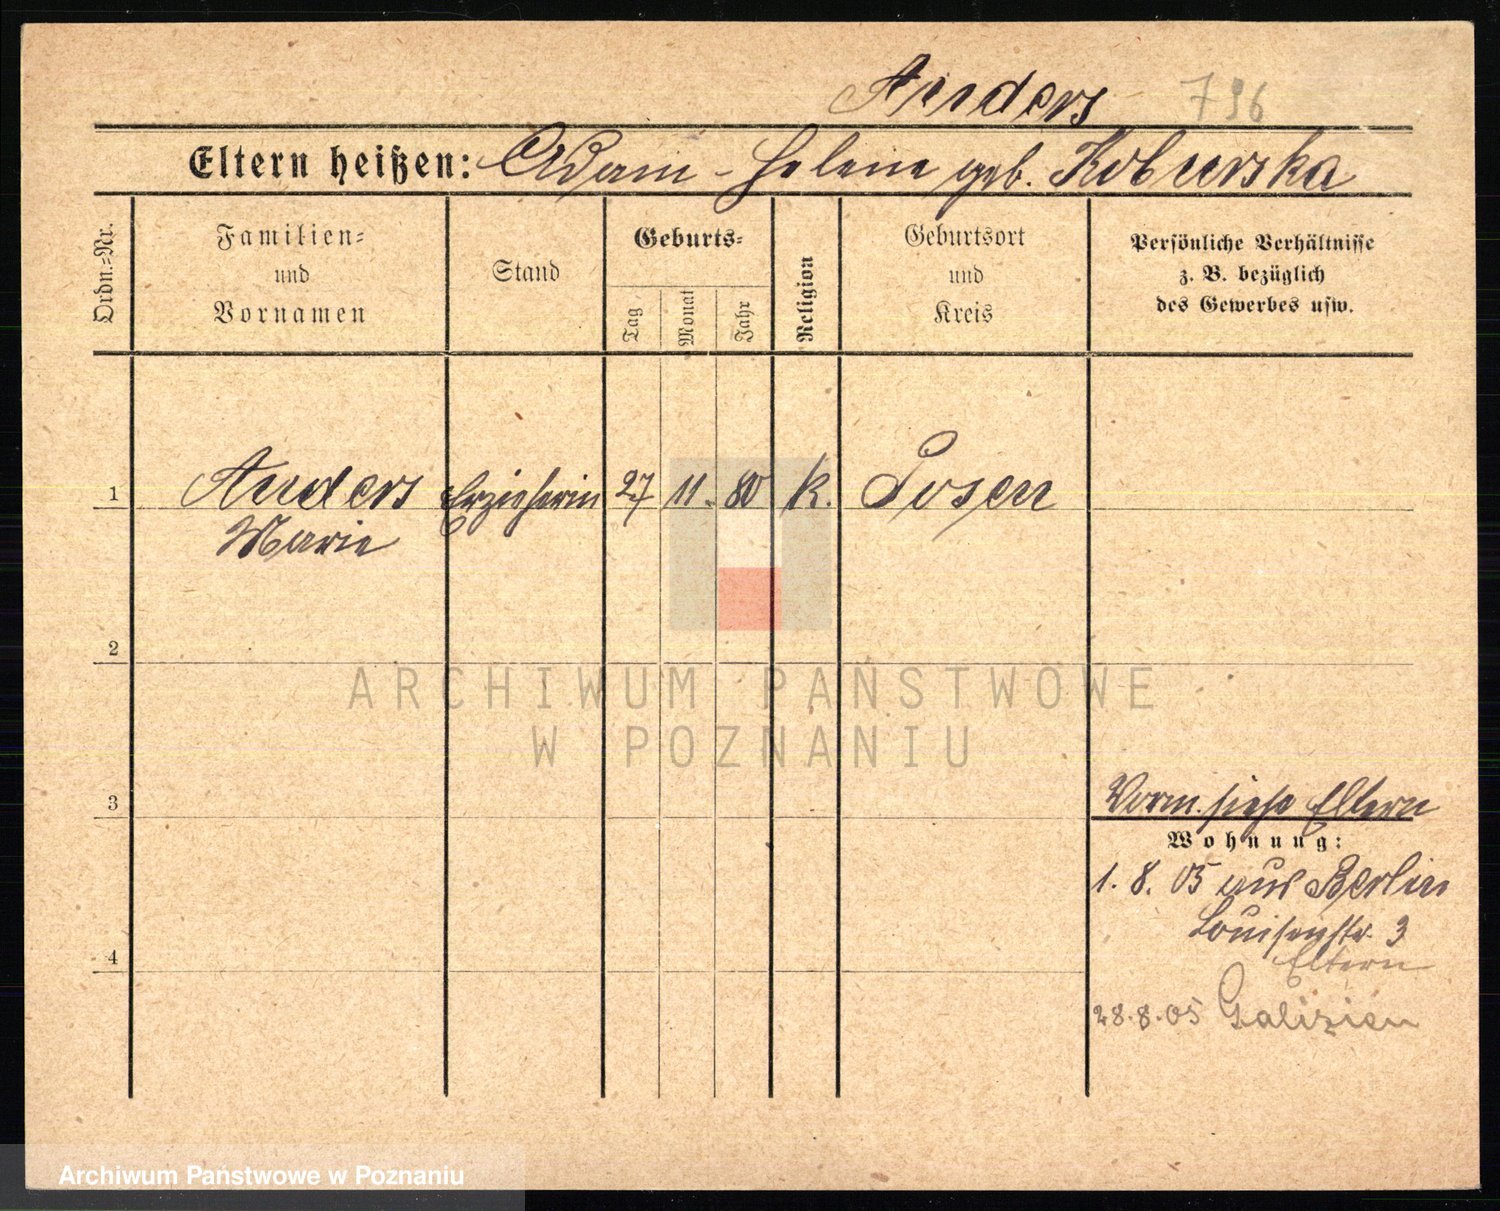 Anders 796
Eltern heißen: Adam - Helene geb. Koburska
Ordn.-Nr.
Familien-
und
Vornamen
Stand
Geburts-
Tag
Monat
Jahr
Religion
Geburtsort
und
Kreis
Persönliche Verhältnisse
z. B. bezüglich
des Gewerbes usw.
1 Anders Erzieherin 27 11. 80 k. Posen
Marie
2
ARCHIWUM PAŃSTWOWE
W POZNANIU
3 Vorm. siehe Eltern
Wohnung:
1. 8. 05 aus Berlin
Louisenstr. 3
4 Eltern
28.8.05 Galizien
Archiwum Państwowe w Poznaniu